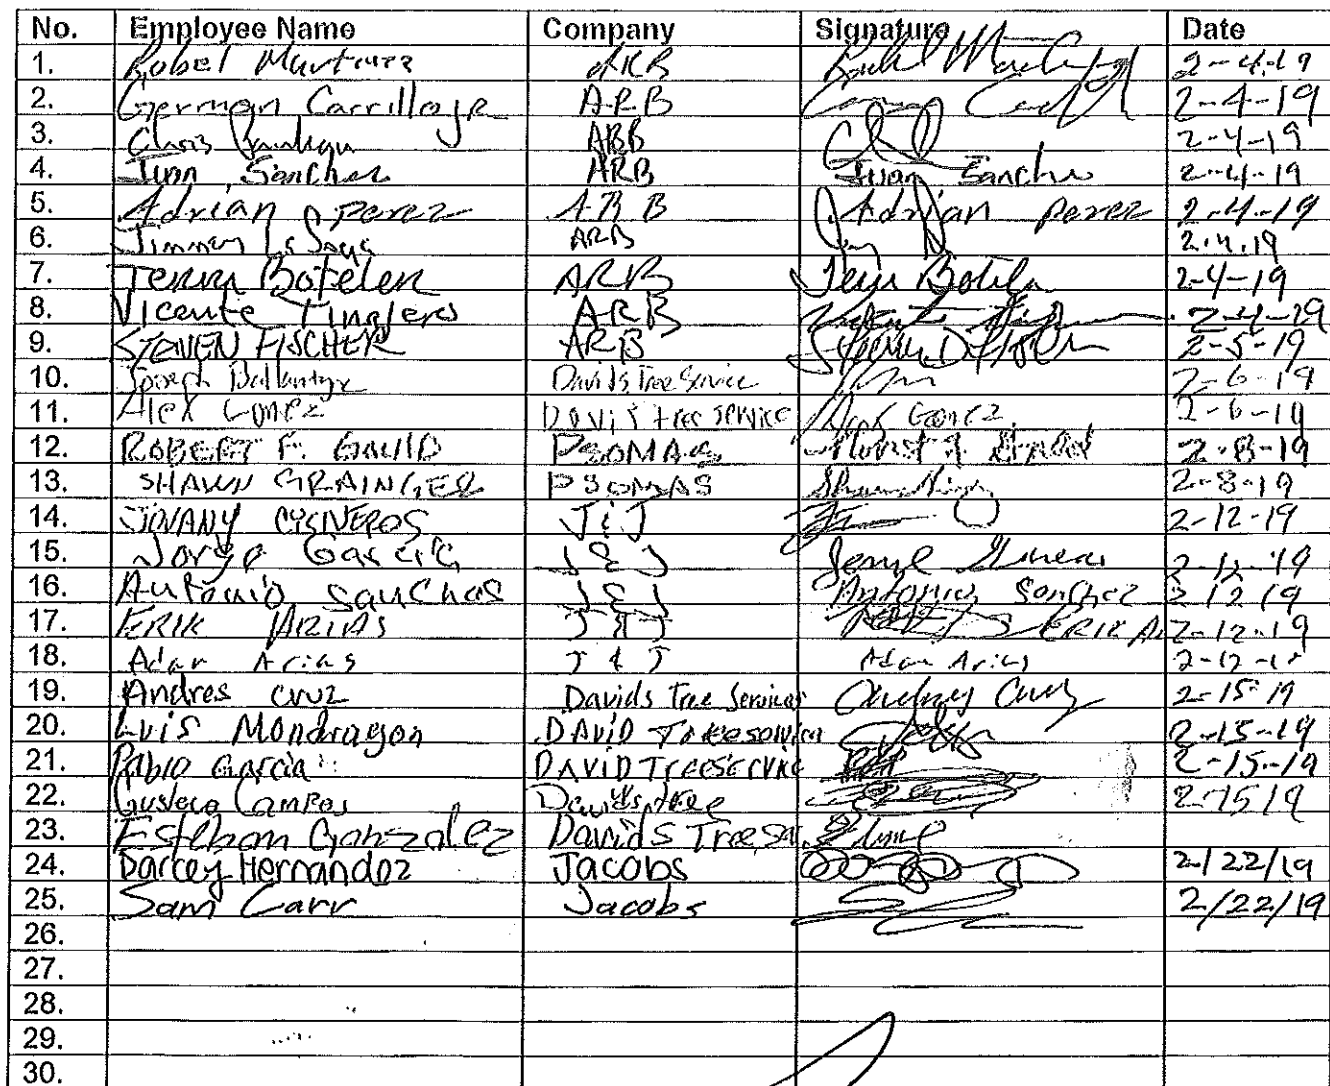 No. Employee Name Company Signature Date
1. Robel Martinez ARB 2-4-19
2. German Carrillo JR ARB 2-4-19
3. Chris ARB 2-4-19
4. Juan Sanchez ARB Juan Sanchez 2-4-19
5. Adrian perez ARB Adrian perez 2-4-19
6. Jimmy ARB 2.4.19
7. Terry Boteler ARB 2-4-19
8. Vicente ARB 2-4-19
9. STEVEN FISCHER ARB 2-5-19
10. Joseph Ballantyne Davids Tree Service 2-6-19
11. Alex Gomez DAVIS tree SERVICE Alex Gomez 2-6-19
12. ROBERT F. GAULD PSOMAS 2-8-19
13. SHAWN GRAINGER PSOMAS 2-8-19
14. JOVANY CISNEROS J&J 2-12-19
15. Jorge Garcia J&J 2-12-19
16. Antonio Sanchas J&J Antonio Sanchez 2 12 19
17. ERIK ARIAS J&J ERIK A. 2-12-19
18. Adan Arias J&J Adan Arias 2-12-19
19. Andres cruz Davids Tree Services 2-15-19
20. Luis Mondragon DAVID Treeservice 2-15-19
21. Pablo Garcia DAVID TREESERVICE 2-15-19
22. Gustavo Campos Davids tree 2-15 19
23. Esteban Gonzalez Davids Treese.
24. Darcey Hernandez Jacobs 2/22/19
25. Sam Carr Jacobs 2/22/19
26.
27.
28.
29.
30.